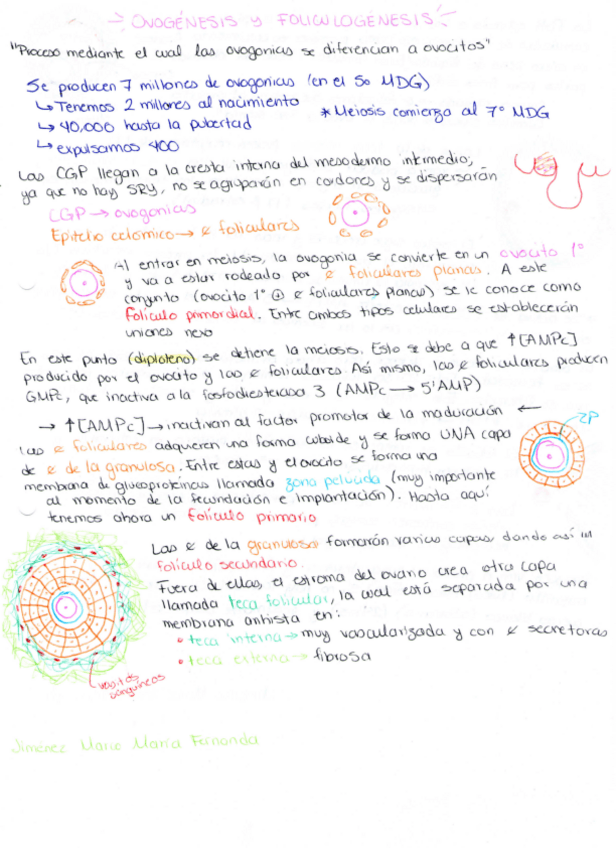 OVOGÉNESIS Y FOLICULOGÉNESIS
"Proceso mediante el cual las ovogonias se diferencian a ovocitos"
Se producen 7 millones de ovogonias (en el 5o MDG)
↳ Tenemos 2 millones al nacimiento
* Meiosis comienza al 7° MDG
↳ 40,000 hasta la pubertad
↳ expulsamos 400
Las CGP llegan a la cresta interna del mesodermo intermedio,
ya que no hay SRY, no se agruparán en cordones y se dispersarán
CGP → ovogonias
Epitelio celómico → ¢ foliculares
Al entrar en meiosis, la ovogonia se convierte en un ovocito 1°
y va a estar rodeado por ¢ foliculares planas. A este
conjunto (ovocito 1° ⊕ ¢ foliculares planas) se le conoce como
folículo primordial. Entre ambos tipos celulares se establecerán
uniones nexo
En este punto (diploteno) se detiene la meiosis. Esto se debe a que ↑[AMPc]
producido por el ovocito y las ¢ foliculares. Así mismo, las ¢ foliculares producen
GMPc, que inactiva a la fosfodiesterasa 3 (AMPc → 5'AMP)
→ ↑[AMPc] → inactivan al factor promotor de la maduración ←
Las ¢ foliculares adquieren una forma cuboide y se forma UNA capa
de ¢ de la granulosa. Entre estas y el ovocito se forma una
membrana de glucoproteínas llamada zona pelúcida (muy importante
al momento de la fecundación e implantación). Hasta aquí
tenemos ahora un folículo primario
ZP
Las ¢ de la granulosa formarán varias capas dando así un
folículo secundario.
Fuera de ellas, el estroma del ovario crea otra capa
llamada teca folicular, la cual está separada por una
membrana anhista en:
• teca interna → muy vascularizada y con ¢ secretoras
• teca externa → fibrosa
vasitos
sanguíneos
Jiménez Marie Marra Fernanda